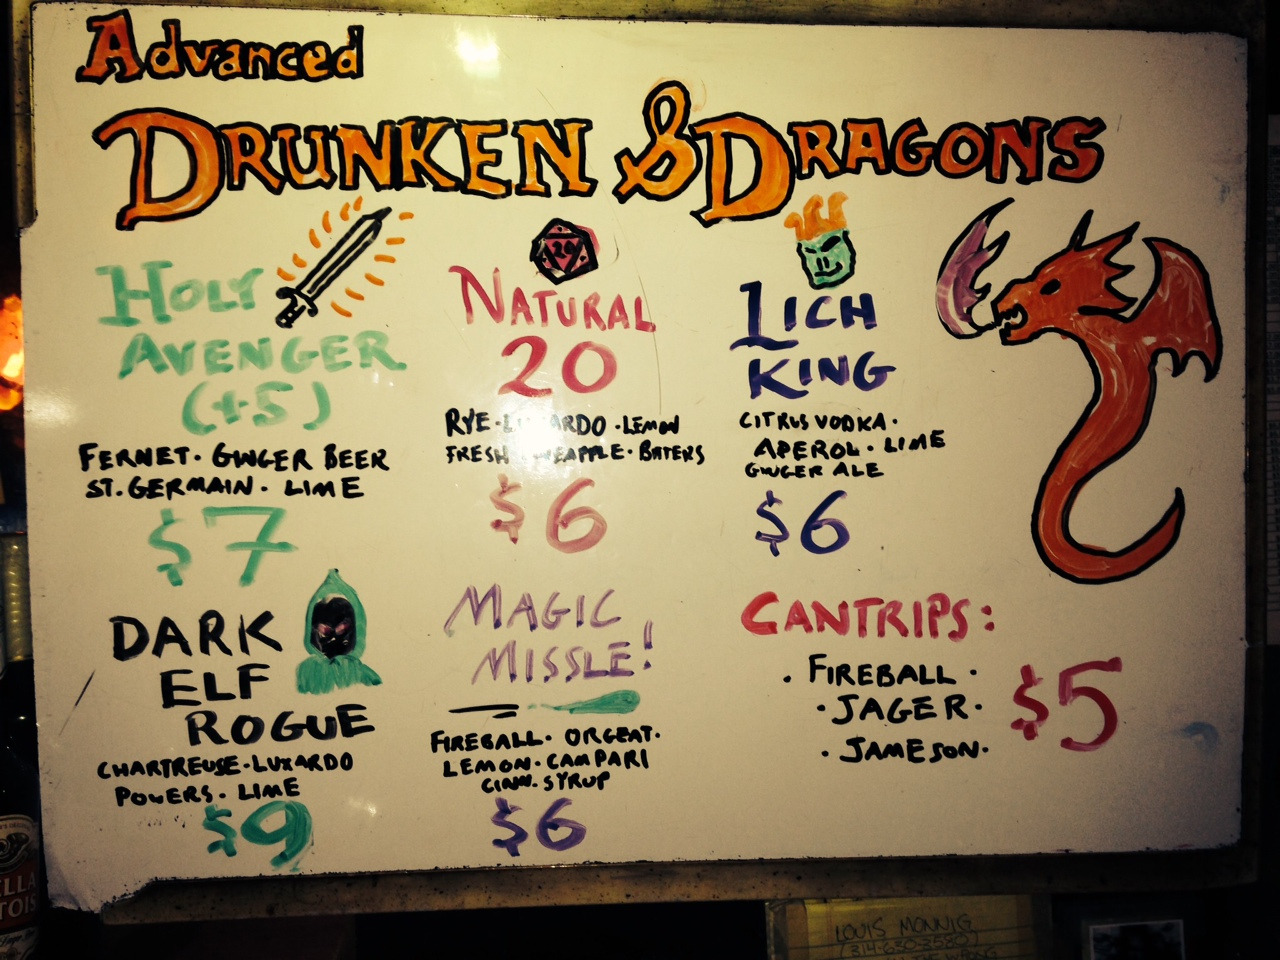 Advanced
DRUNKEN & DRAGONS
HOLY
AVENGER
(+5)
FERNET · GINGER BEER
ST. GERMAIN · LIME
$7
20
NATURAL
20
RYE · LUXARDO · LEMON
FRESH PINEAPPLE · BITERS
$6
LICH
KING
CITRUS VODKA ·
APEROL · LIME
GINGER ALE
$6
DARK
ELF
ROGUE
CHARTREUSE · LUXARDO
POWERS · LIME
$9
MAGIC
MISSLE!
FIREBALL · ORGEAT ·
LEMON · CAMPARI
CINN. SYRUP
$6
CANTRIPS:
· FIREBALL ·
· JAGER ·
· JAMESON ·
$5
LOUIS MONNIG